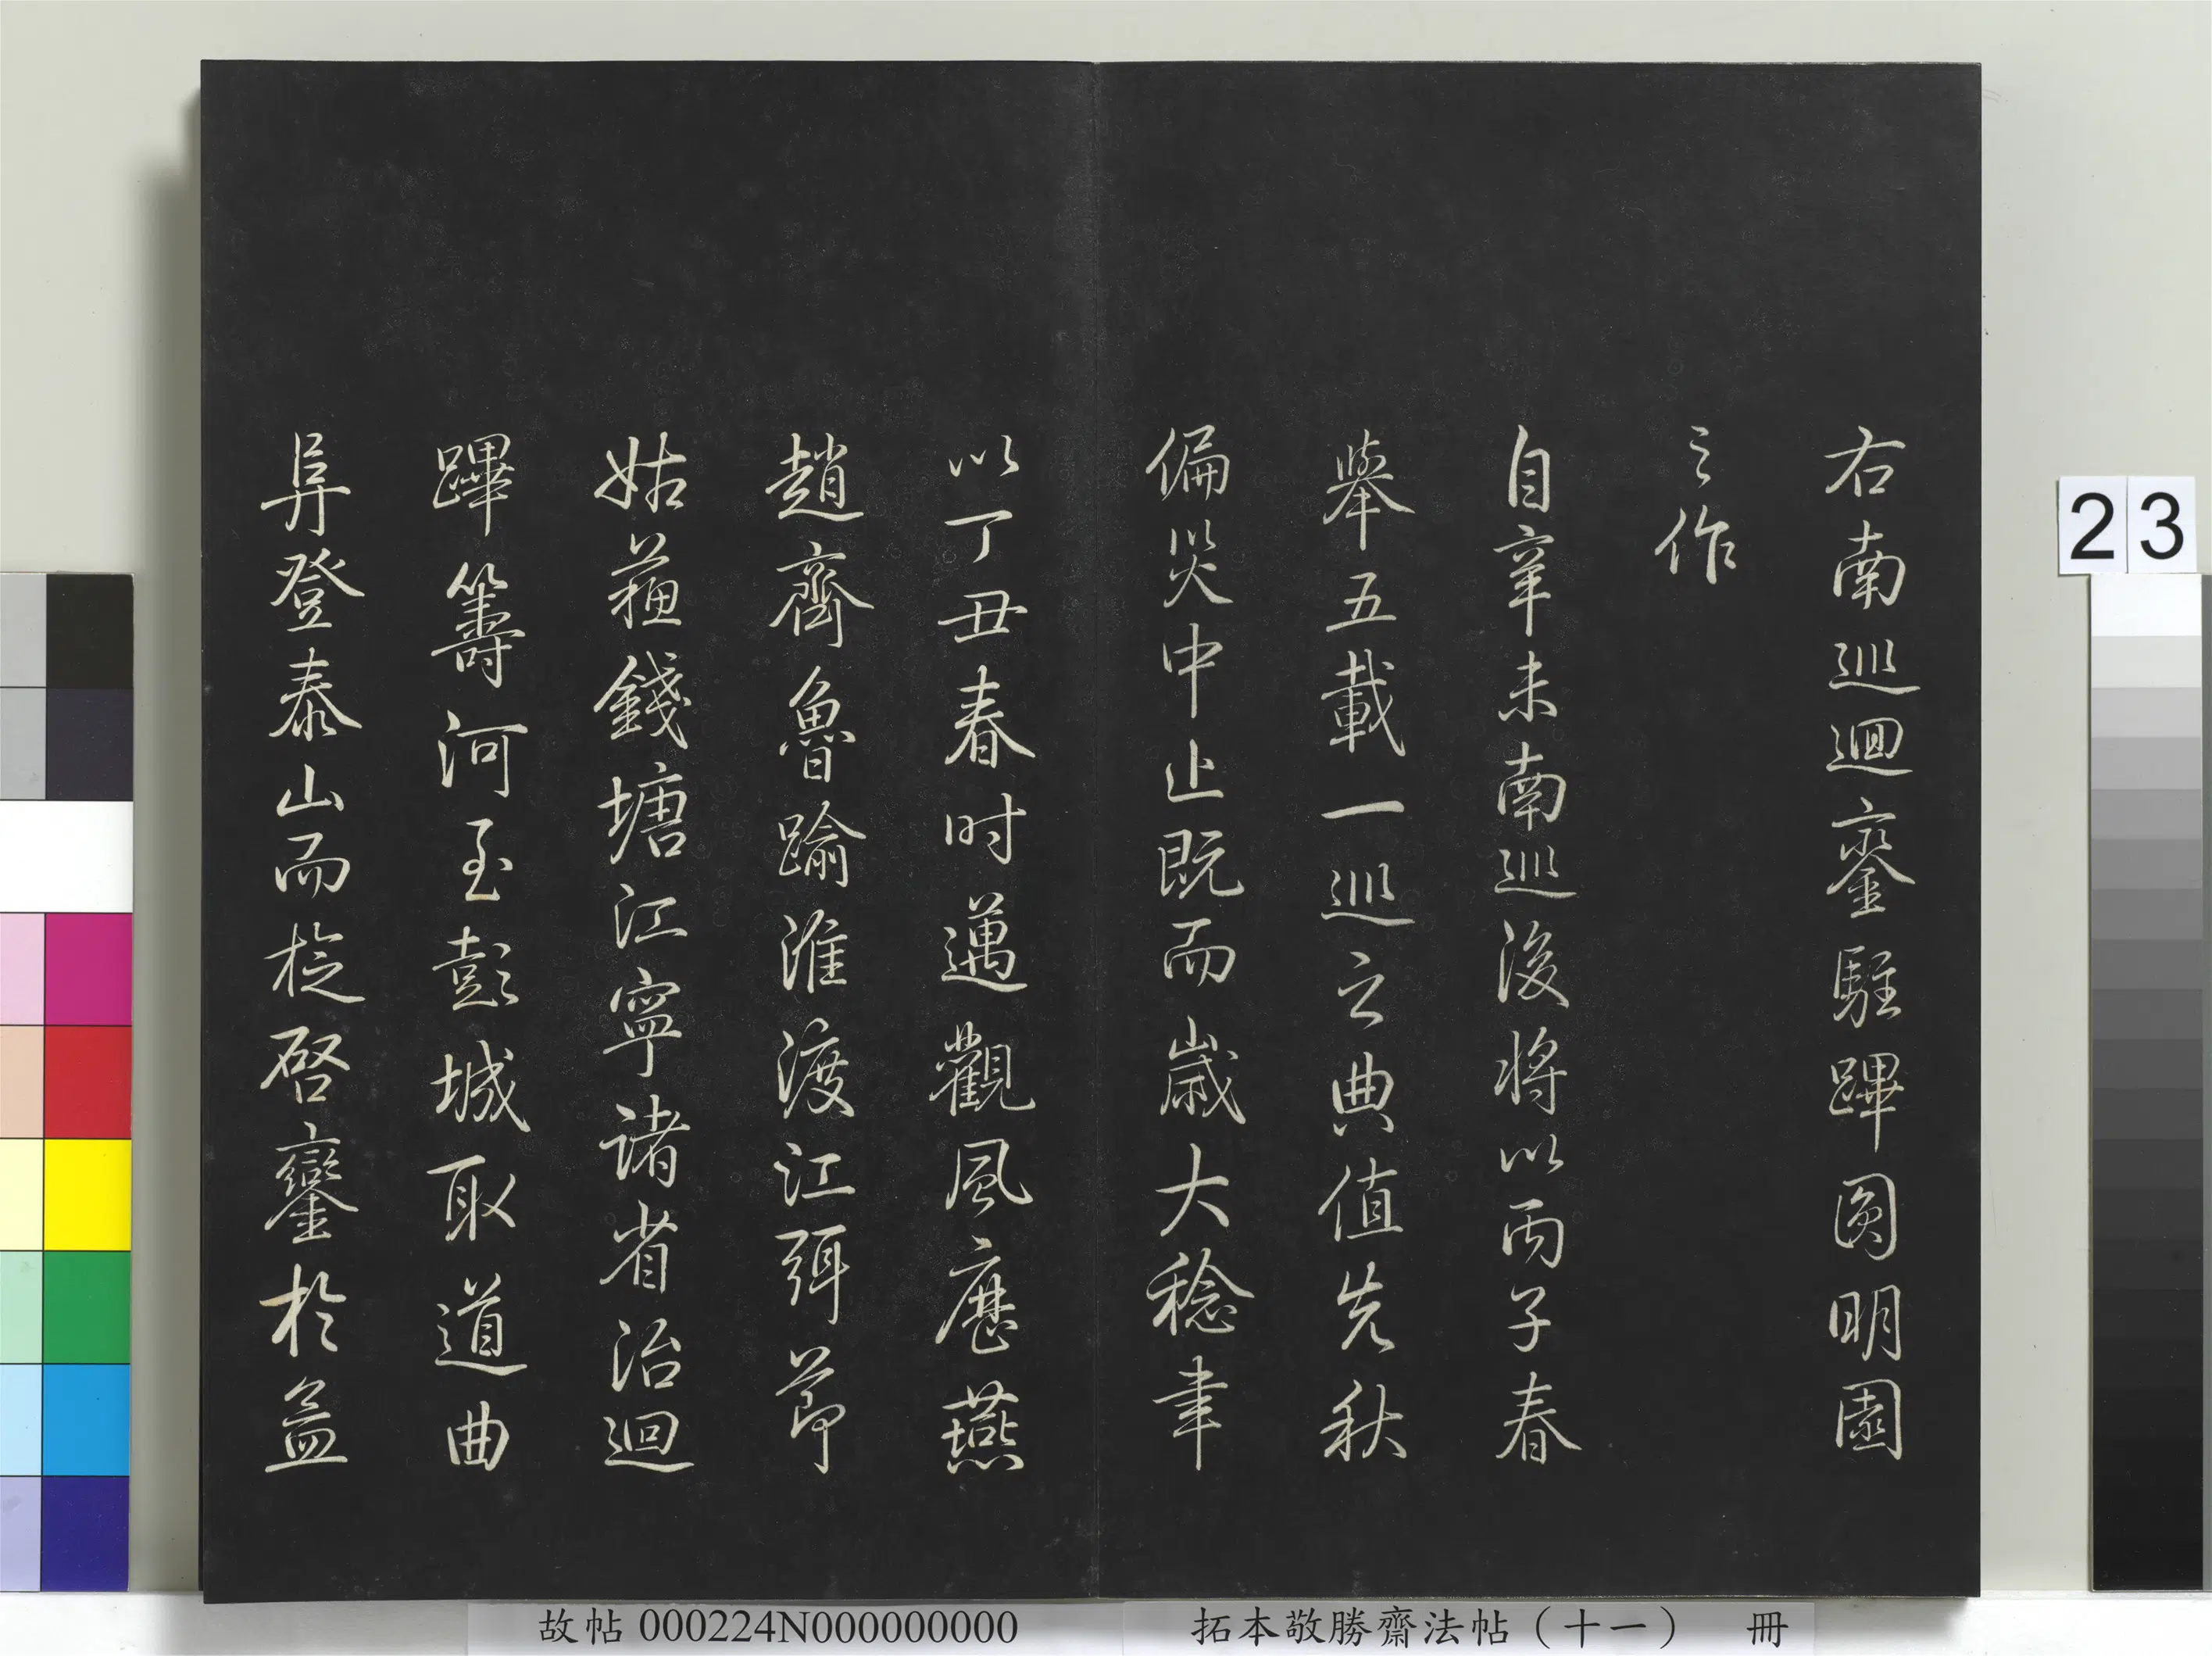 右南巡迴鑾駐蹕圓明園
之作
自辛未南巡後將以丙子春
舉五載一巡之典值先秋
偏災中止既而歲大稔聿
以丁丑春時邁觀風歷燕
趙齊魯踰淮渡江弭節
姑蘇錢塘江寧諸省治迴
蹕籌河至彭城取道曲
阜登泰山而旋啓鑾於孟
23
故帖 000224N000000000
拓本敬勝齋法帖（十一） 冊